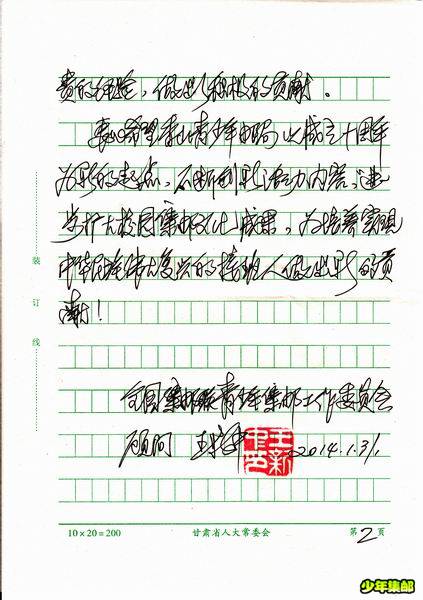 贵的经验，做出了积极的贡献。
衷心希望青少年邮局以成立十周年
为新的起点，不断创新活动内容，进一
步扩大校园集邮文化成果，为培养实现
中华民族伟大复兴的接班人做出新的贡
献！
全国集邮联青少年集邮工作委员会
顾问 王新中 2014.1.31.
王新中印
装
订
线
10×20=200 甘肃省人大常委会 第2页
少年集邮